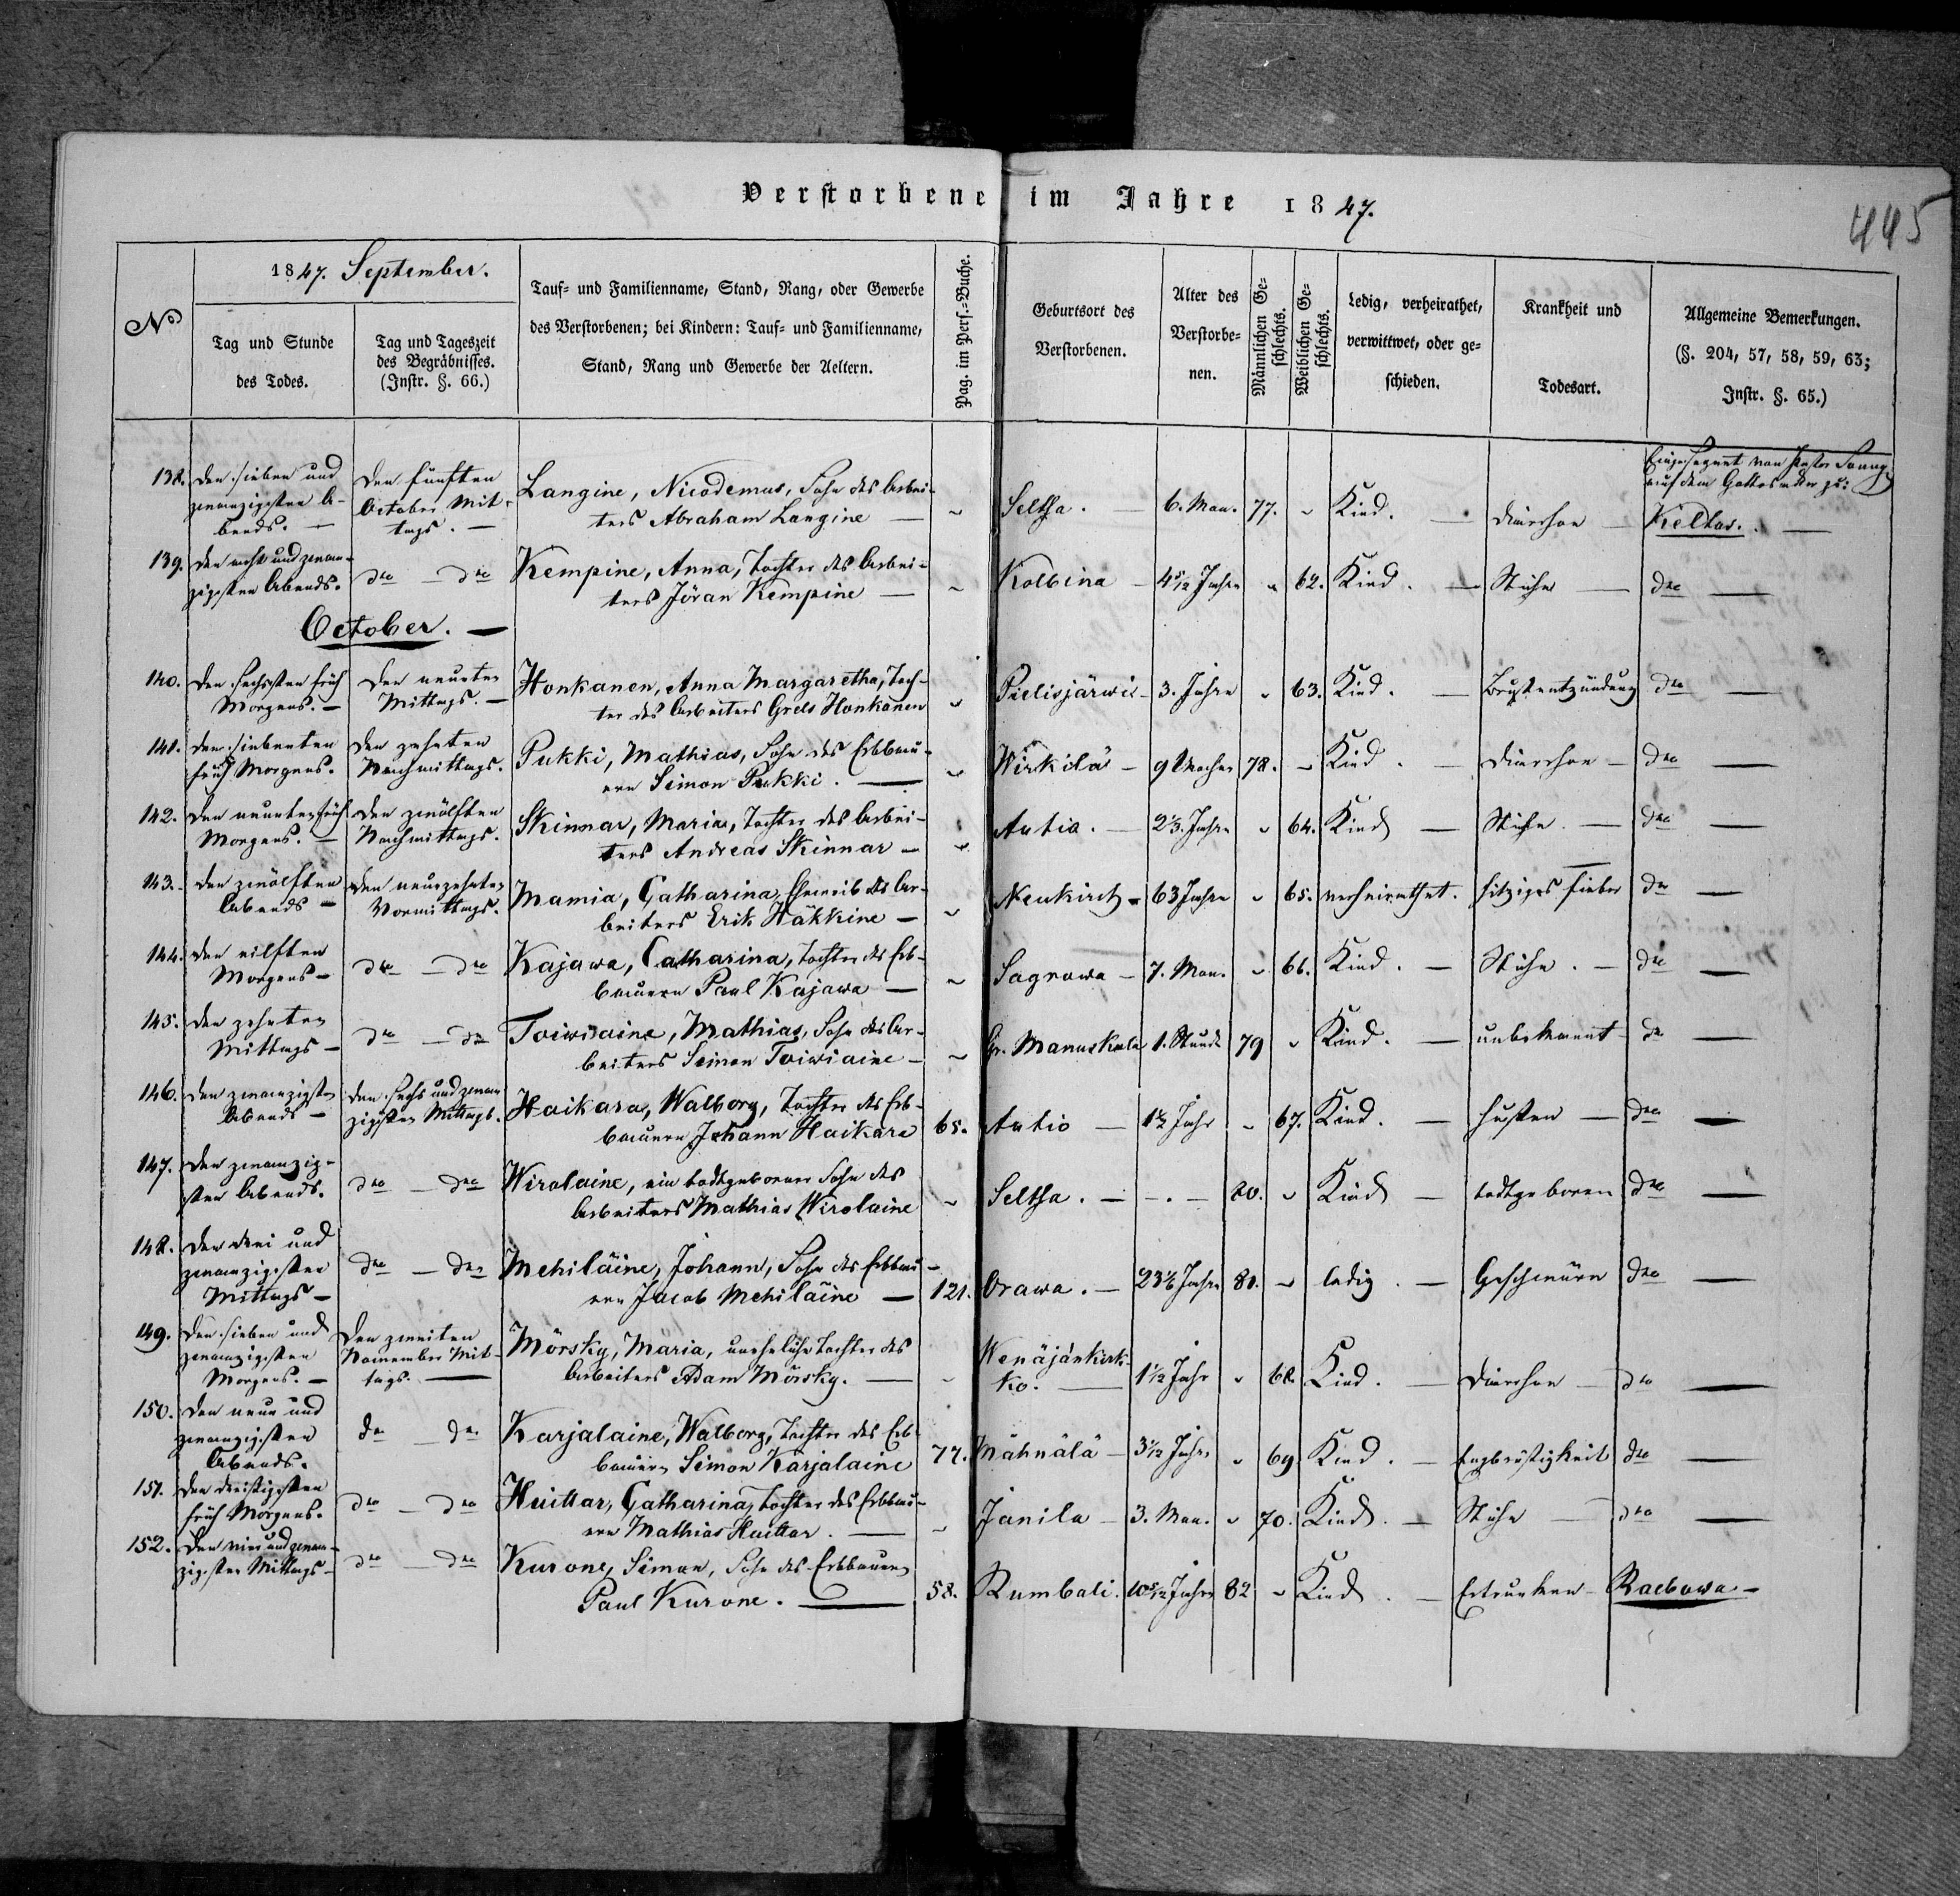 Verstorbene im Jahre 1847.
445
No
1847. September.
Tag und Stunde
des Todes.
Tag und Tageszeit
des Begräbnisses.
(Instr. §. 66.)
Tauf- und Familienname, Stand, Rang, oder Gewerbe
des Verstorbenen; bei Kindern: Tauf- und Familienname,
Stand, Rang und Gewerbe der Aeltern.
Pag. im Pers.-Buche.
Geburtsort des
Verstorbenen.
Alter des
Verstorbe-
nen.
Männlichen Ge-
schlechts.
Weiblichen Ge-
schlechts.
Ledig, verheirathet,
verwittwet, oder ge-
schieden.
Krankheit und
Todesart.
Allgemeine Bemerkungen.
(§. 204, 57, 58, 59, 63;
Instr. §. 65.)
138.
den sieben und
zwanzigsten A-
bends. —
den fünften
October Mit-
tags. —
Langine, Nicodemus, Sohn des Arbei-
ters Abraham Langine —
Seltsa. —
6. Mon.
77.
Kind. —
Diarrhoe —
Eingesegnet von Pastor
auf dem Gottesacker zu:
Keltos. —
139.
den acht und zwan-
zigsten Abends.
dto — dto
Kempine, Anna, Tochter des Arbei-
ters Jöran Kempine —
Kolbina —
4 5/12 Jahre
62.
Kind. —
Ruhr —
dto —
October. —
140.
den sechsten früh
Morgens. —
den neunten
Mittags. —
Honkanen, Anna Margaretha, Toch-
ter des Arbeiters Grels Honkanen
Pielisjärwi —
3. Jahre
63.
Kind. —
Brustentzündung
dto —
141.
den siebenten
früh Morgens.
den zehnten
Nachmittags.
Pukki, Mathias, Sohn des Erbbau-
ern Simon Pukki. —
Wirkilä —
9 Wochen
78.
Kind. —
Diarrhoe —
dto —
142.
den neunten früh
Morgens. —
den zwölften
Nachmittags.
Skinnar, Maria, Tochter des Arbei-
ters Andreas Skinnar —
Autio. —
2 1/3. Jahre
64.
Kind —
Ruhr. —
dto —
143.
den zwölften
Abends —
den neunzehnten
Vormittags.
Mamia, Catharina, Eheweib des Ar-
beiters Erik Häkkine —
Neukirch —
63 Jahre
65.
verheirathet.
hitziges Fieber
dto —
144.
den eilften
Morgens —
dto — dto
Kajawa, Catharina, Tochter des Erb-
bauern Paul Kajawa —
Sagrowa —
7. Mon.
66.
Kind. —
Ruhr. —
dto —
145.
den zehnten
Mittags —
dto — dto
Toiwiaine, Mathias, Sohn des Ar-
beiters Simon Toiwiaine —
Gr. Manuskala
1. Stunde
79
Kind. —
unbekannt —
dto —
146.
den zwanzigsten
Abends —
den sechs und zwan
zigsten Mittags.
Haikara, Walborg, Tochter des Erb-
bauern Johann Haikara
65.
Autio —
1 1/2 Jahr
67.
Kind. —
Husten —
dto —
147.
den zwanzig-
sten Abends.
dto — dto
Wirolaine, ein todtgeborner Sohn des
Arbeiters Mathias Wirolaine
Seltsa. —
— . —
80.
Kind —
todtgeboren
dto —
148.
den drei und
zwanzigsten
Mittags —
dto — dto
Mehiläine, Johann, Sohn des Erbbau-
ern Jacob Mehiläine —
121.
Orawa. —
23 1/6 Jahre
81.
ledig. —
Geschwüre
dto —
149.
den sieben und
zwanzigsten
Morgens. —
den zweiten
November Mit-
tags. —
Mörsky, Maria, uneheliche Tochter des
Arbeiters Adam Mörsky. —
Wenäjänkirk-
ko. —
1 1/2 Jahr
68.
Kind. —
Diarrhoe —
dto —
150.
den neun und
zwanzigsten
Abends.
dto — dto
Karjalaine, Walborg, Tochter des Erb-
bauern Simon Karjalaine
77.
Mähnälä —
3 1/12 Jahre
69
Kind. —
Engbrüstigkeit
dto —
151.
den dreissigsten
früh Morgens.
dto — dto
Huittar, Catharina, Tochter des Erbbau-
ern Mathias Huittar. —
Janila —
3. Mon.
70.
Kind. —
Ruhr —
dto —
152.
den vier und zwan-
zigsten Mittags —
dto — dto
Kurone, Simon, Sohn des Erbbauern
Paul Kurone. —
58.
Rumbali.
10 5/12 Jahre
82
Kind. —
Ertrunken —
Raebowa —